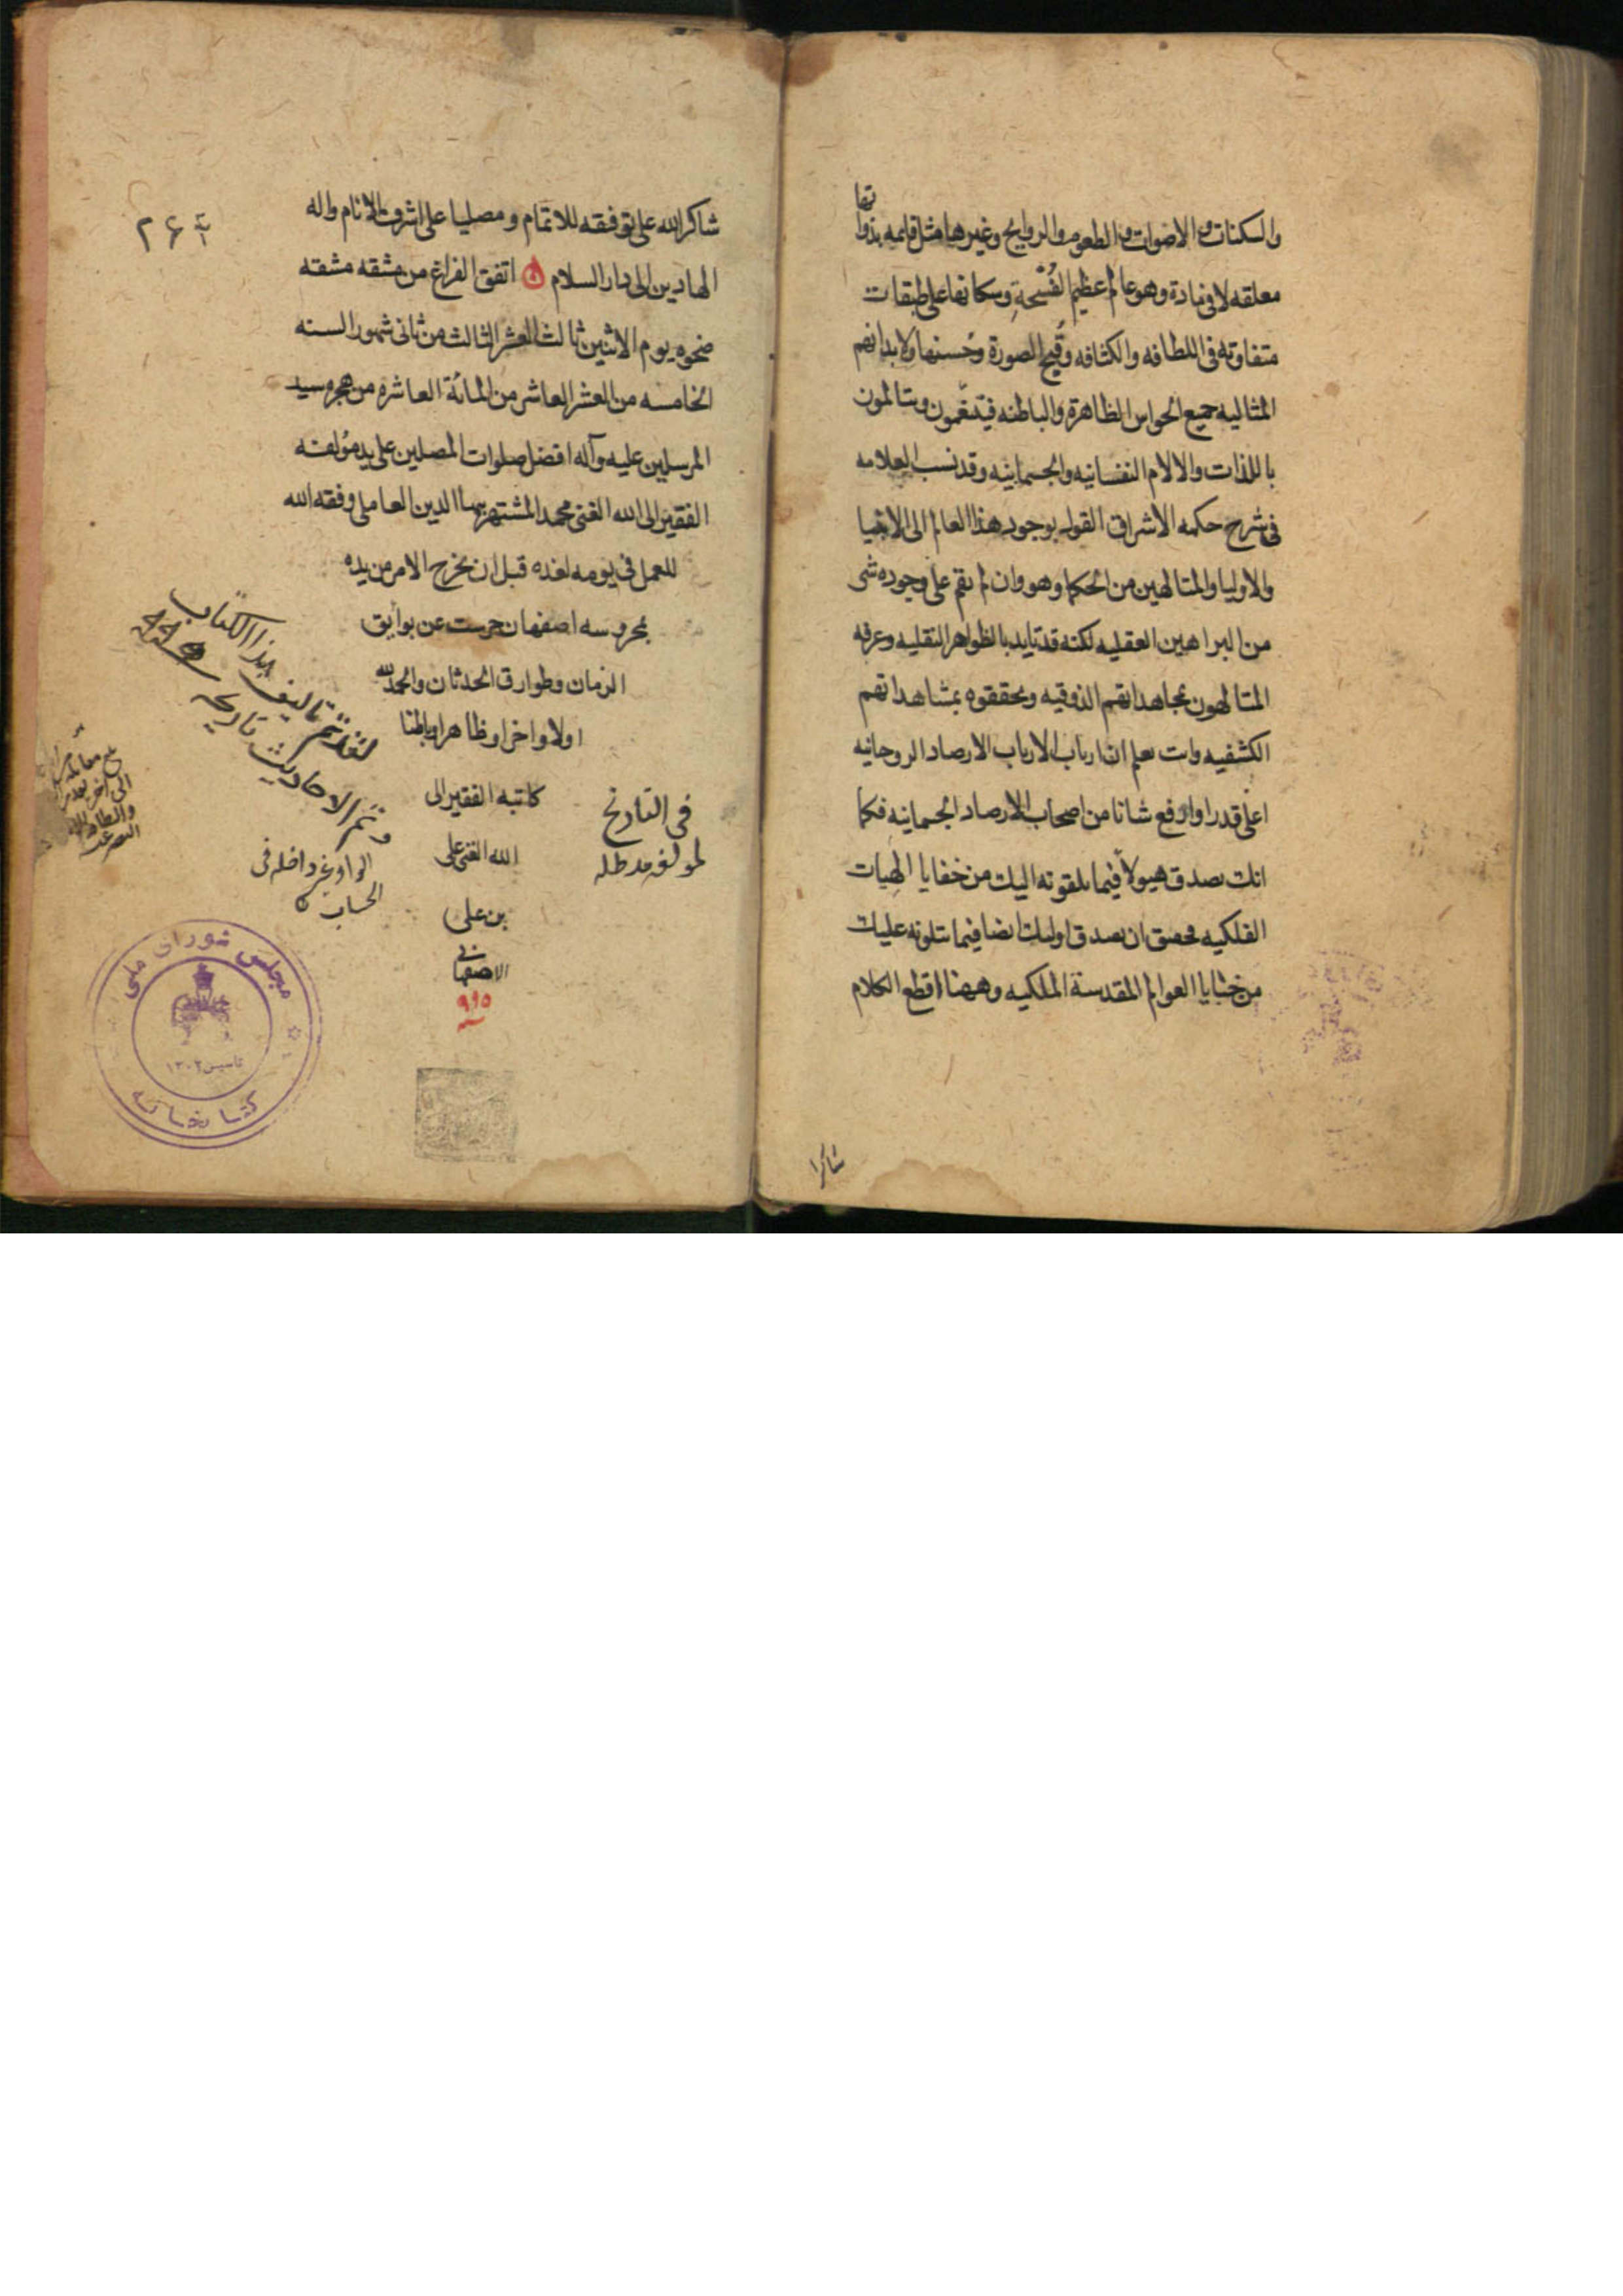 والسكنات والاصوات والطعوم والروايح وغيرها مثل قايمه بذواتها
معلقه لا فى مادة وهو عالم عظيم الفُسْحةِ وسكانها على طبقات
متفاوته فى اللطافه والكثافه وقُبح الصورة وحُسنها ولابدانهم
المثاليه جميع الحواس الظاهرة والباطنه فيتنعّمون ويتالمون
باللذات والالام النفسانيه والجسمانيه وقد نسب العلامه
فى شرح حكمه الاشراق القول بوجود هذا العالم الى الانبيا
والاوليا والمتالهين من الحكما وهو وان لم يقم على وجوده شى
من البراهين العقليه لكنه قد تايد بالظواهر النقليه وعرفه
المتالهون بمجاهداتهم الذوقيه وتحققوه بمشاهداتهم
الكشفيه وانت تعلم ان ارباب الارصاد الروحانيه
اعلى قدرا وارفع شانا من اصحاب الارصاد الجسمانيه فكما
انك تصدق هيولا فيما يلقونه اليك من خفايا الهيات
الفلكيه فحقيق ان تصدق اوليك ايضا فيما يتلونه عليك
من خبايا العوالم المقدسة الملكيه وههنا اقطع الكلام
شاكرا
شاكرا لله على توفيقه للاتمام ومصليا على اشرف الانام واله
الهادين الى دار السلام اتفق الفراغ من مشقه مشقته
ضحوه يوم الاثنين ثالث العشر الثالث من ثانى شهور السنه
الخامسه من العشر العاشر من المائة العاشره من هجره سيد
المرسلين عليه وآله افضل صلوات المصلين على يد مؤلفه
الفقير الى الله الغنى محمد المشتهر ببها الدين العاملى وفقه الله
للعمل فى يومه لغده قبل ان يخرج الامر من يده
بمحروسه اصفهان حرست عن بوايق
الزمان وطوارق الحدثان والحمد لله
اولا واخرا وظاهرا وباطنا
كاتبه الفقير الى
الله الغنى على
بن على
الاصفهانى
٩٩٥
فى التاريخ
لمولفه مد ظله
لقد تم تاليف هذا الكتاب
وتم الاحاديث تاريخه
الواو غير داخله فى
الحساب
٢۶٤
مجلس شورای ملی
تاسیس ١٣٠٢
کتابخانه